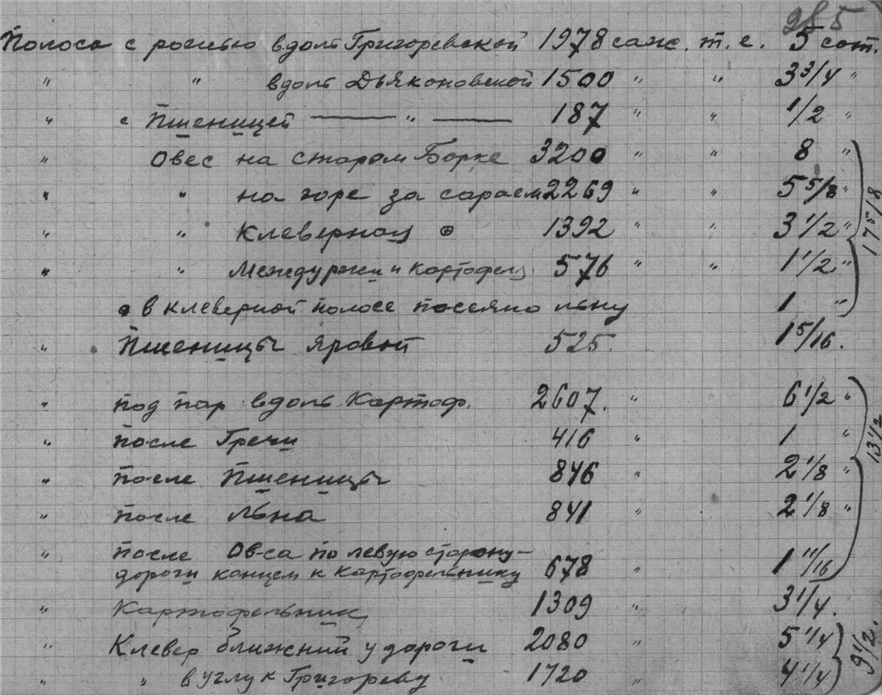 285
Полоса с рожью вдоль Григоревской 1978 саж. т. е. 5 сот.
" " вдоль Дьяконовской 1500 " " 3 3/4 "
" с Пшеницей — " — 187 " " 1/2 "
" Овес на старом Борке 3200 " " 8 "
" " на горе за сараем 2269 " " 5 5/8 "
" " Клеверная ⊕ 1392 " " 3 1/2 "
" " Между ржи и картофель 576 " " 1 1/2 "
в клеверной полосе посеяно льну 1 "
17 5/8
" Пшеницы яровой 525. 1 5/16.
" под пар вдоль Картоф. 2607. " 6 1/2 "
" после Гречи 416 " 1 "
" после Пшеницы 846 " 2 1/8 "
" после Льна 841 " 2 1/8 "
" после Овса по левую сторону
дороги концем к картофельнику 678 " 1 11/16
13 1/2
" Картофельник 1309 " 3 1/4.
" Клевер ближний у дороги 2080 " 5 1/4
" " в углу к Григореву 1720 " 4 1/4
9 1/2.